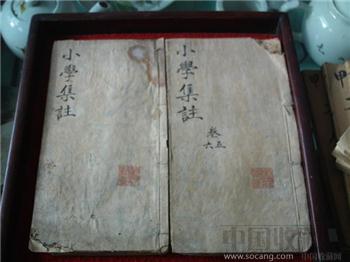 小學集註
小學集註
卷五
六
中国收藏网
www.socang.com 中国收藏网